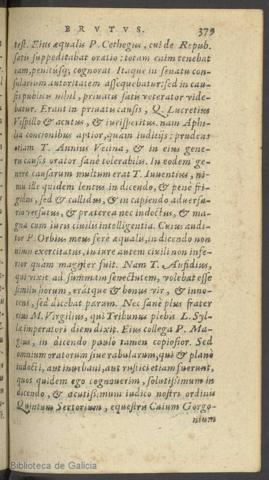 BRVTVS. 379
test. Eius æqualis P. Cethegus, cui de Repub.
satis suppeditabat oratio: totam enim tenebat
eam, penitusq; cognorat. Itaque in senatu con-
sularium autoritatem assequebatur: sed in cau-
sis publicis nihil, priuatis satis veterator vide-
batur. Erant in priuatis causis, Q. Lucretius
Vispillo & acutus, & iurisperitus. nam Aphi-
lia concionibus aptior, quàm iudicijs: prudens
etiam T. Annius Velina, & in eius gene-
ris causis orator sanè tolerabilis. In eodem ge-
nere causarum multum erat T. Iuuentius, ni-
mis ille quidem lentus in dicendo, & penè fri-
gidus, sed & callidus, & in capiendo aduersa-
rio versutus, & præterea nec indoctus, & ma-
gna cum iuris ciuilis intelligentia. Cuius audi-
tor P. Orbius meus ferè æqualis, in dicendo non
nimis exercitatus, in iure autem ciuili non infe-
rior quàm magister fuit. Nam T. Aufidius,
qui vixit ad summam senectutem, volebat esse
similis horum, eratque & bonus vir, & inno-
cens, sed dicebat parum. Nec sanè plus frater
eius M. Virgilius, qui Tribunus plebis L. Syl-
læ imperatori diem dixit. Eius collega P. Ma-
gius, in dicendo paulo tamen copiosior. Sed
omnium oratorum siue rabularum, qui & planè
indocti, aut inurbani, aut rustici etiam fuerunt,
quos quidem ego cognouerim, solutissimum in
dicendo, & acutissimum iudico nostri ordinis
Quintum Sertorium, equestris Caium Gorgo-
nium
Biblioteca de Galicia